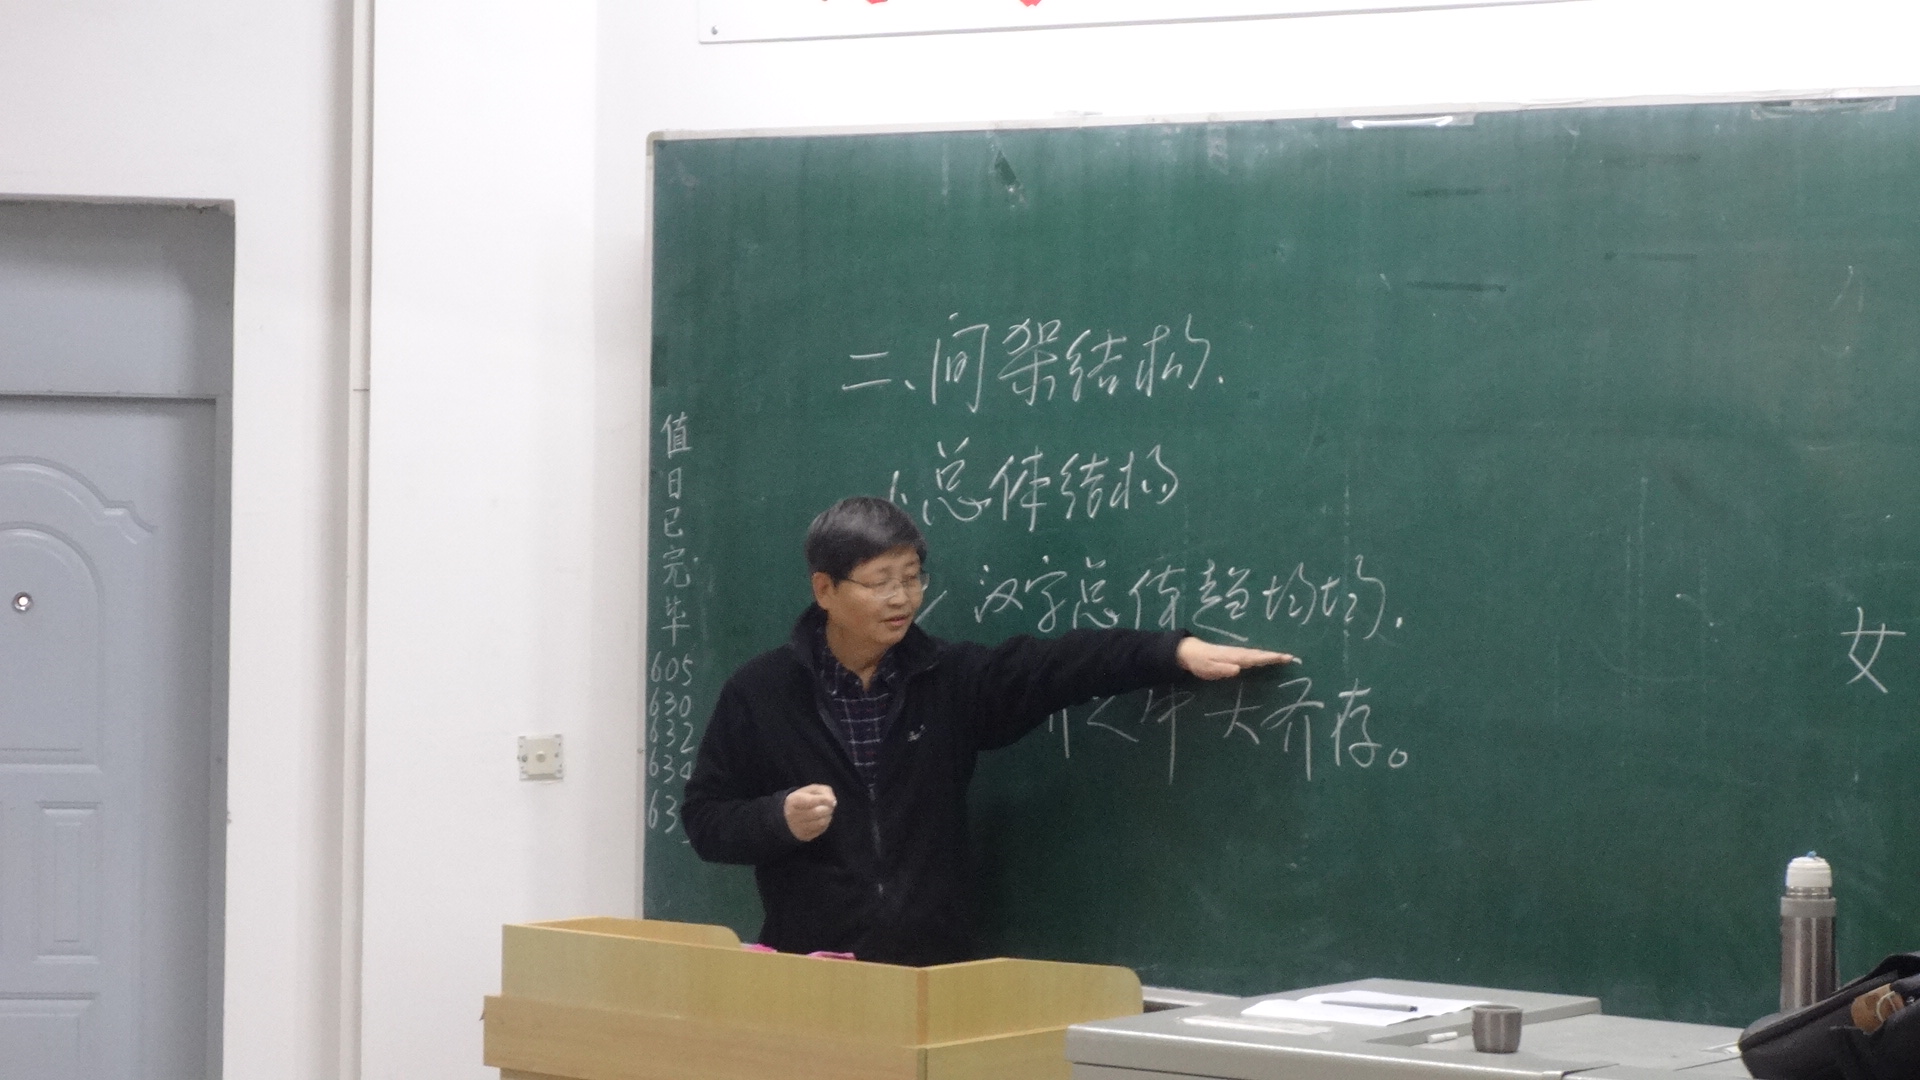 二、间架结构.
1.总体结构
汉字总体趋均场.
齐之中大齐存。
女
值日已完毕
605
630
632
630
63